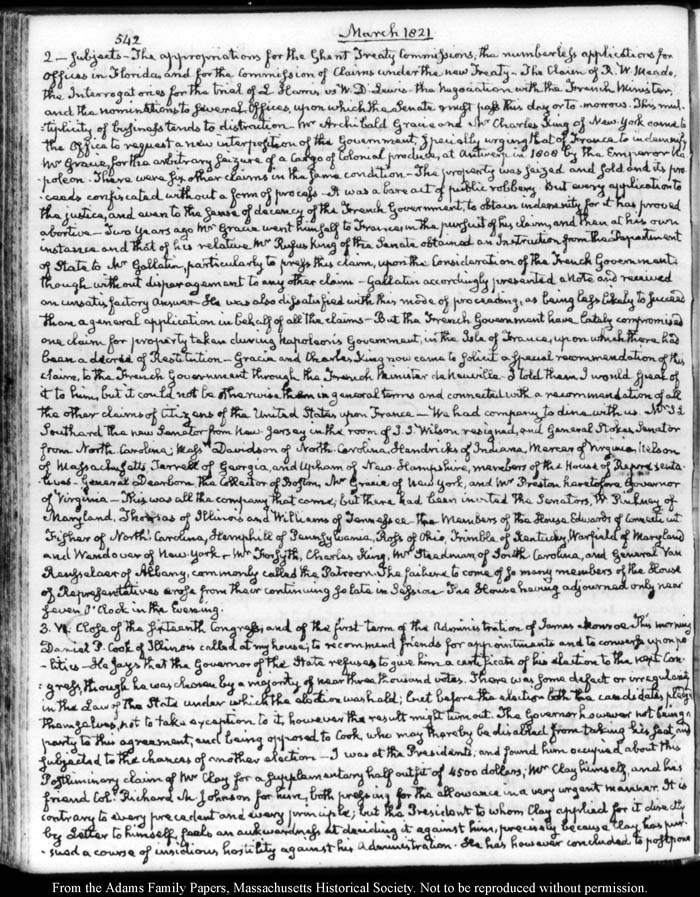 542
March 1821
2 — subjects — The appropriations for the Ghent Treaty Commissions, the numberless applications for
offices in Florida, and for the Commission of Claims under the new Treaty — The Claim of R. W. Meade,
the Interrogatories for the trial of L Harris vs W. D. Lewis — the Negociation with the French Minister,
and the nominations to several offices, upon which the Senate must pass this day or to-morrow. This mul-
tiplicity of business tends to distraction — Mr Archibald Gracie and Mr Charles King of New York came to
the Office to request a new interposition of the Government, specially urging that of France to indemnify
Mr Gracie, for the arbitrary seizure of a Cargo of Colonial produce, at Antwerp in 1808 by the Emperor Na-
-poleon. There were six other claims in the same condition — The property was seized and sold and its pro-
-ceeds confiscated without a form of process — It was a bare act of public robbery. But every application to
the justice, and even to the sense of decency of the French Government, to obtain indemnity for it has proved
abortive — Two years ago Mr Gracie went himself to France in the pursuit of his claim, and then at his own
instance and that of his relative Mr Rufus King of the Senate obtained an Instruction from the Department
of State to Mr Gallatin, particularly to press this claim, upon the Consideration of the French Government,
though without disparagement to any other claim — Gallatin accordingly presented a Note and received
an unsatisfactory Answer — He was also dissatisfied with this mode of proceeding, as being less likely to succeed
than a general application in behalf of all the claims — But the French Government have lately compromised
one claim for property taken during Napoleon's Government, in the Isle of France, upon which there had
been a decree of Restitution — Gracie and Charles King now came to solicit a special recommendation of this
claim, to the French Government through the French Minister de Neuville — I told them I would speak of
it to him, but it could not be otherwise than in general terms and connected with a recommendation of all
the other claims of Citizens of the United States upon France — We had company to dine with us. Mr S. L
Southard the new Senator from New-Jersey in the room of J. J. Wilson resigned, and General Stokes, Senator
from North Carolina; Messrs Davidson of North-Carolina, Hendricks of Indiana, Mercer of Virginia, Nelson
of Massachusetts, Terrell of Georgia, and Upham of New Hampshire, members of the House of Representa-
-tives — General Dearborn the Collector of Boston, Mr Gracie of New York, and Mr Preston heretofore Governor
of Virginia — This was all the company that came, but there had been invited the Senators, W. Pinkney of
Maryland, Thomas of Illinois and Williams of Tennessee — the Members of the House, Edwards of Connecticut
Fisher of North Carolina, Hemphill of Pennsylvania, Ross of Ohio, Trimble of Kentucky, Warfield of Maryland
and Wendover of New York — Mr Forsyth, Charles King, Mr Steadman of South Carolina, and General Van
Rensselaer of Albany, commonly called the Patroon. The failure to come of so many members of the House
of Representatives arose from their continuing so late in Session — The House having adjourned only near
seven O'Clock in the Evening.
3. VII. Close of the sixteenth Congress, and of the first term of the Administration of James Monroe. This morning
Daniel P. Cook of Illinois called at my house; to recommend friends for appointments and to converse upon po-
-litics — He says that the Governor of the State refuses to give him a certificate of his election to the next Con-
-gress, though he was chosen by a majority of near three thousand votes. There was some defect or irregularity
in the Law of the State under which the election was held; but before the election both the candidates pledged
themselves, not to take exception to it, however the result might turn out. The Governor however not being a
party to this agreement, and being opposed to Cook, who may thereby be disabled from taking his seat, and
subjected to the chances of another election — I was at the Presidents, and found him occupied about this
Postliminary claim of Mr Clay for a supplementary half outfit of 4500 dollars; Mr Clay himself, and his
friend Coll. Richard M. Johnson for him, both pressing for the allowance in a very urgent manner. It is
contrary to every precedent and every principle; but the President to whom Clay applied for it directly
by Letter to himself, feels an aukwardness at deciding it against him, precisely because Clay has pur-
-sued a course of insidious hostility against his Administration. He has however concluded to postpone
From the Adams Family Papers, Massachusetts Historical Society. Not to be reproduced without permission.